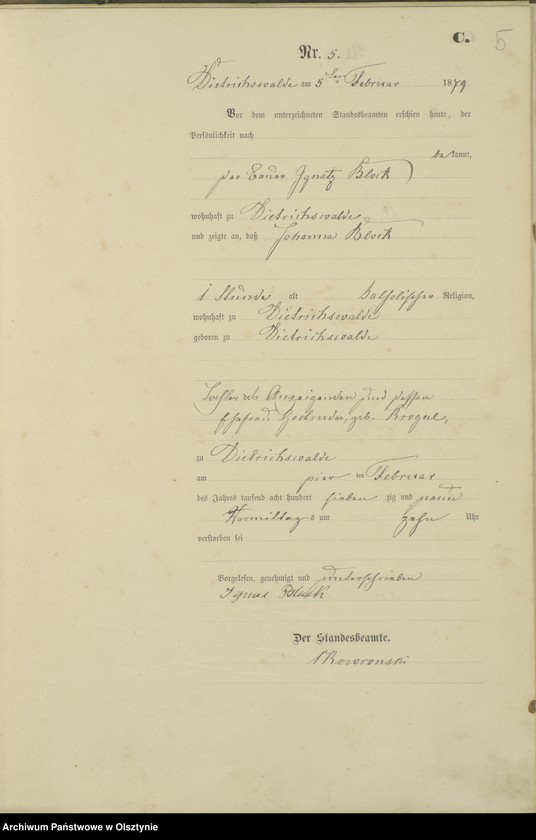 C.
5
Nr. 5.
Dietrichswalde am 5ten Februar 1879
Vor dem unterzeichneten Standesbeamten erschien heute, der
Persönlichkeit nach
bekannt,
der Bauer Ignatz Block
wohnhaft zu Dietrichswalde
und zeigte an, daß Johanna Block
1 Stunde alt katholischer Religion,
wohnhaft zu Dietrichswalde
geboren zu Dietrichswalde
Tochter des Anzeigenden und dessen
Ehefrau Gertrude, geb.
zu Dietrichswalde
am vier ten Februar
des Jahres tausend acht hundert sieben zig und neun
Vormittags um zehn Uhr
verstorben sei
Vorgelesen, genehmigt und unterschrieben
Ignac Block
Der Standesbeamte.
Skowronski
Archiwum Państwowe w Olsztynie